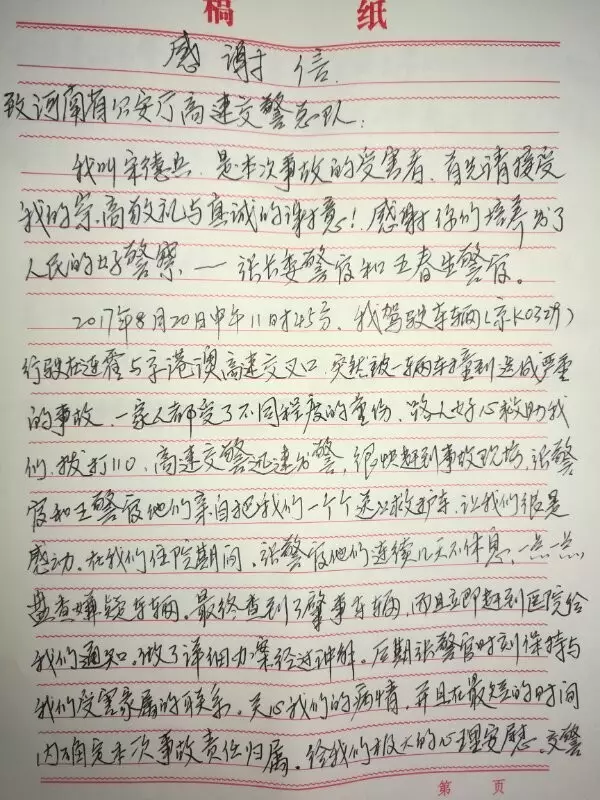 稿 纸
感谢信
致河南省公安厅高速交警总队：
我叫宋德兵，是本次事故的受害者，首先请接受
我的崇高敬礼与真诚的谢意！感谢你们培养出了
人民的好警察，—张长委警官和王春生警官。
2017年8月20日中午11时45分，我驾驶车辆（京K0329）
行驶在连霍与京港澳高速交叉口，突然被一辆车撞到造成严重
的事故，一家人都受了不同程度的重伤，路人好心救助我
们，拨打110，高速交警迅速出警，很快赶到事故现场，张警
官和王警官他们亲自把我们一个个送上救护车，让我们很是
感动。在我们住院期间，张警官他们连续几天不休息，一点一点
盘查嫌疑车辆，最终查到了肇事车辆，而且立即赶到医院给
我们通知，做了详细办案经过讲解。后期张警官时刻保持与
我们受害家属的联系，关心我们的病情，并且在最短的时间
内确定本次事故责任归属，给我们极大的心理安慰，交警
第 页